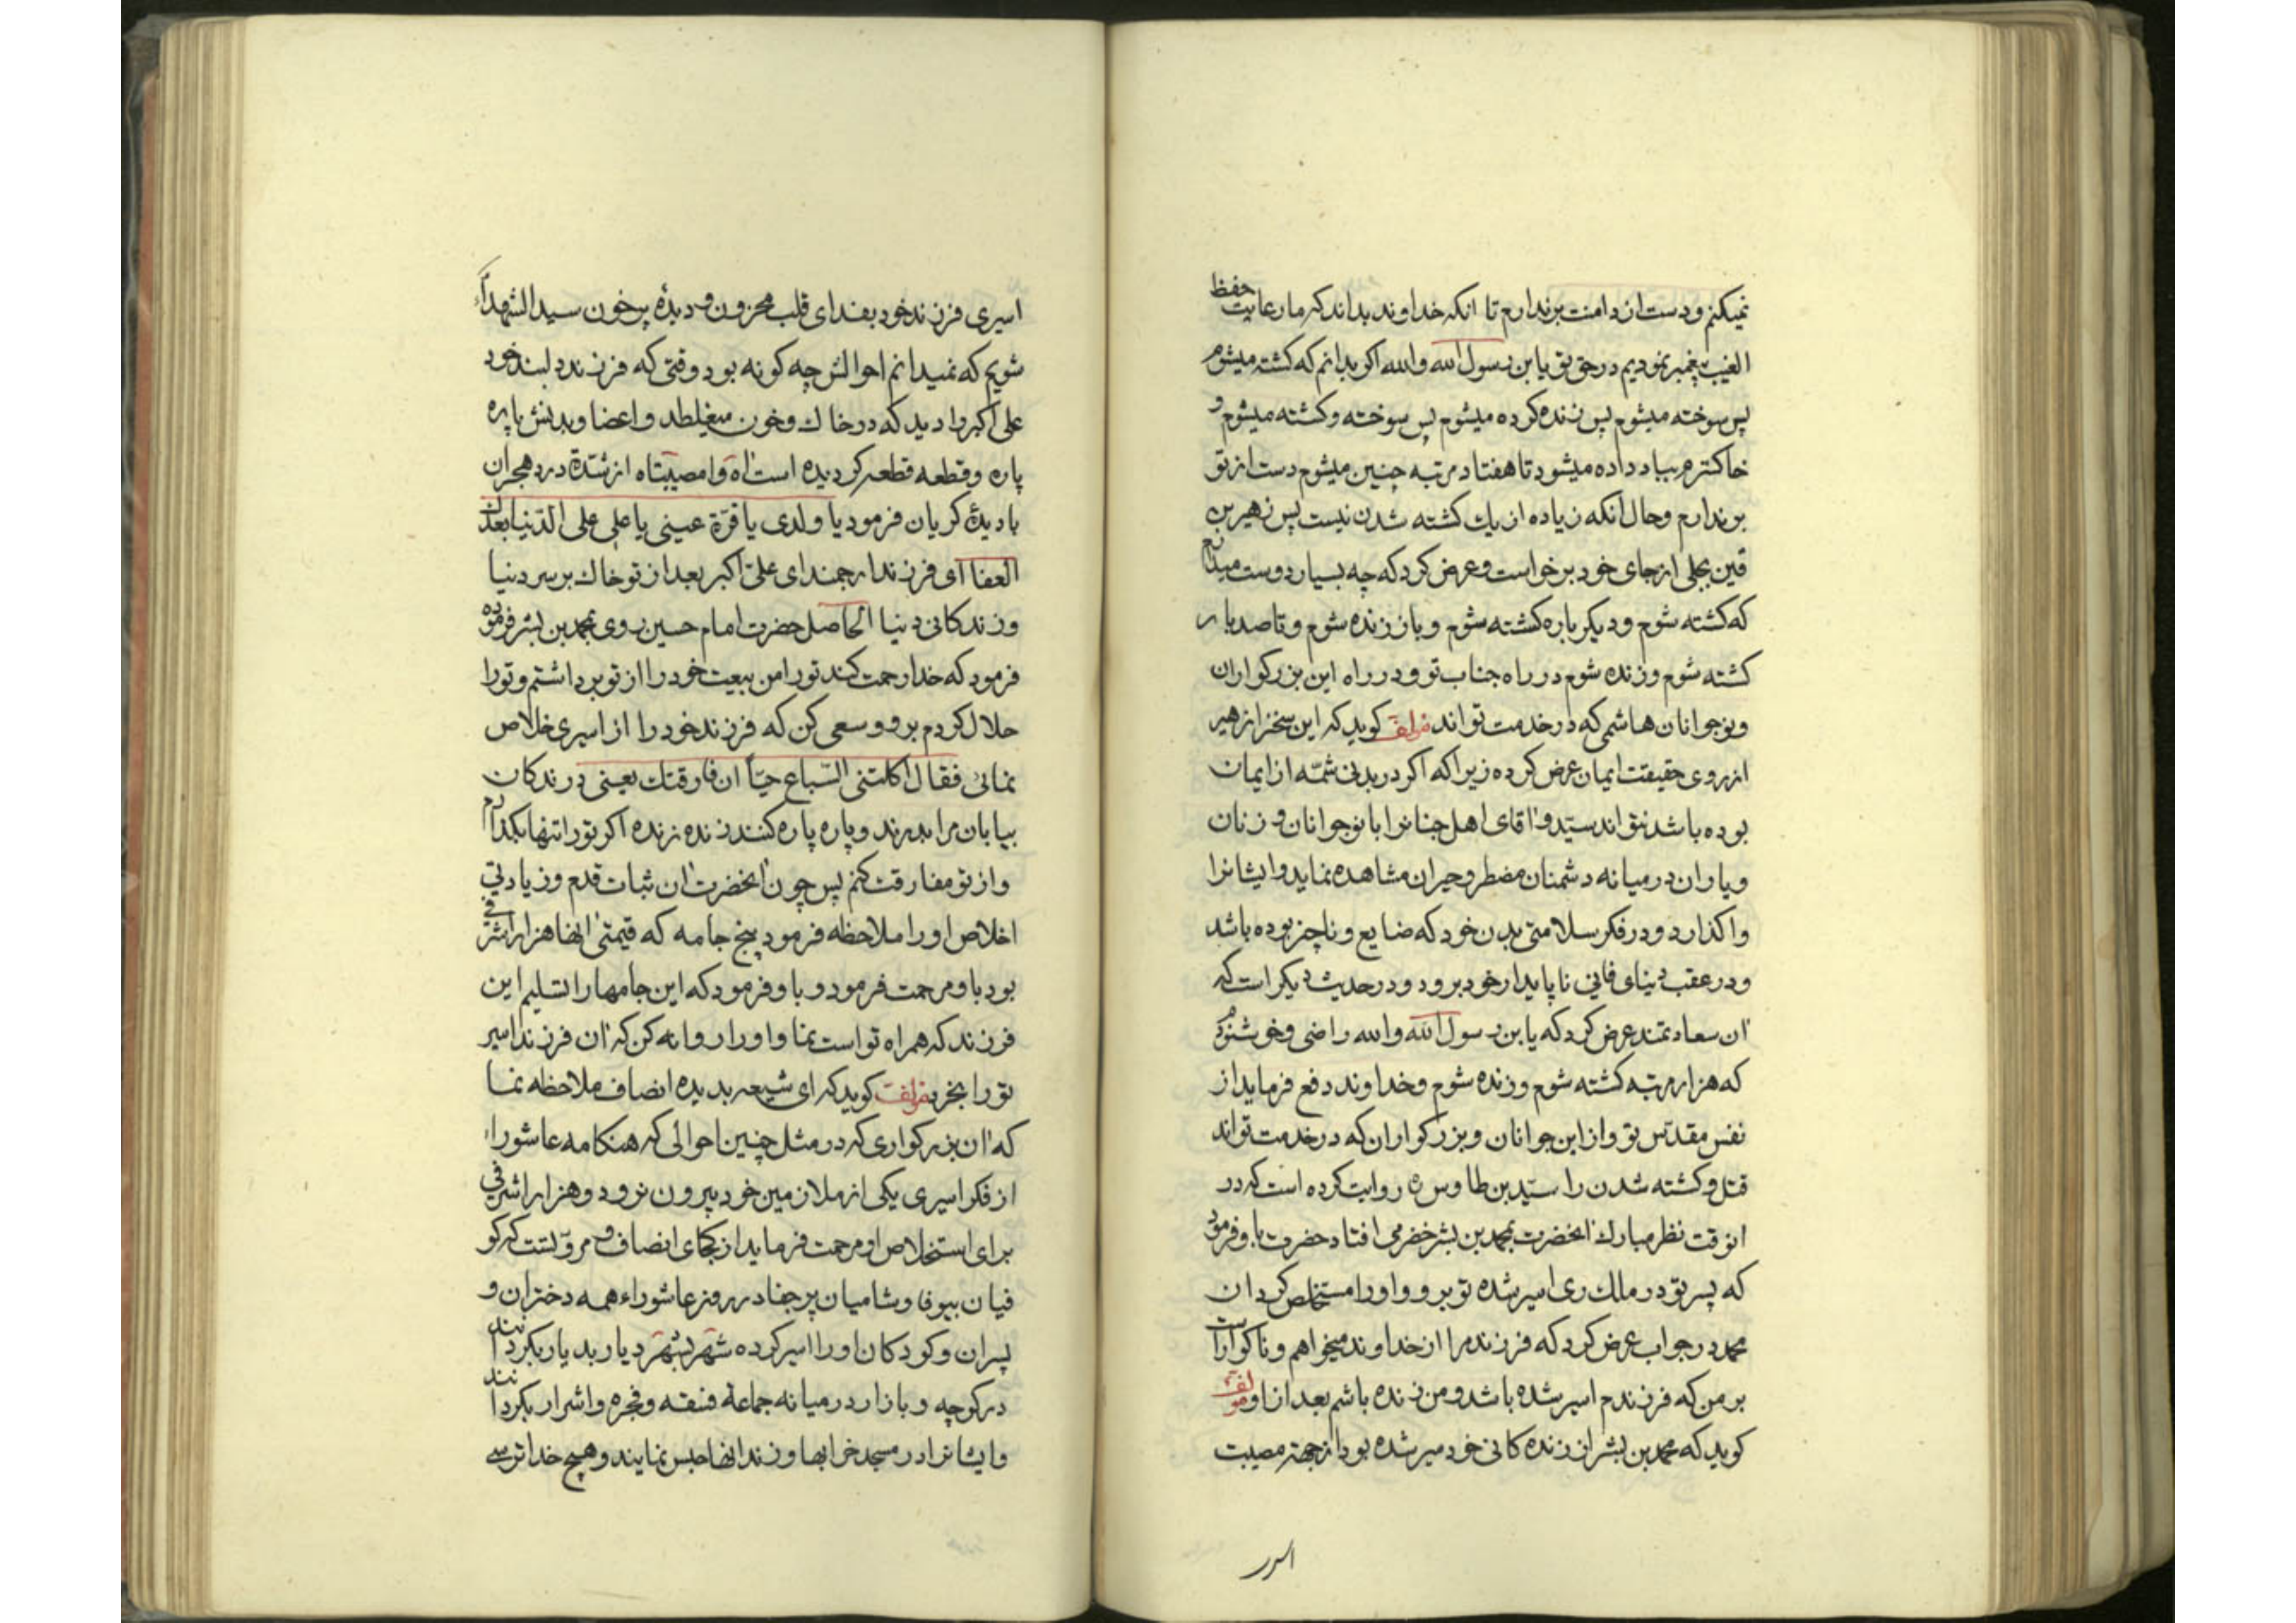 نمیکنم ودست از دامنت برندارم تا انکه خداوند بداند که ما رعایت حفظ
الغیب پیغمبر نمودیم در حق تو یا بن رسول الله والله اکر بدانم که کشته میشوم
پس سوخته میشوم پس زنده کرده میشوم پس سوخته وکشته میشوم و
خاکسترم بباد داده میشود تا هفتاد مرتبه چنین میشوم دست از تو
برندارم وحال انکه زیاده از یك کشته شدن نیست پس زهیر بن
قین بجلی از جای خود برخواست وعرض کرد که چه بسیار دوست میدارم
که کشته شوم ودیکر باره کشته شوم وباز زنده شوم وتا صد بار
کشته شوم وزنده شوم در راه جناب تو ودر راه این بزرکواران
ونوجوانان هاشمی که در خدمت تواند مؤلف کوید که این سخن از زهیر
از روی حقیقت ایمان عرض کرده زیرا که اکر در بدنی شمّه از ایمان
بوده باشد نتواند سیّد واقای اهل جنانرا با نوجوانان وزنان
ویاران در میانه دشمنان مضطر وحیران مشاهده نماید وایشانرا
واکذارد ودر فکر سلامتی بدن خود که ضایع وناچیز بوده باشد
ودر عقب دنیای فانی ناپایدار خود برود ودر حدیث دیکر است که
ان سعادتمند عرض کرد که یا بن رسول الله والله راضی وخوشنودم
که هزار مرتبه کشته شوم وزنده شوم وخداوند دفع فرماید از
نفس مقدّس تو واز این جوانان وبزرکواران که در خدمت تواند
قتل وکشته شدن را سیّد بن طاوس ره روایت کرده است که در
انوقت نظر مبارك انحضرت بمحمد بن بشر خضرمی افتاد حضرت باو فرمود
که پسر تو در ملك ری اسیر شده تو برو واورا مستخلص کردان
محمد در جواب عرض کرد که فرزند مرا از خداوند میخواهم وناکوار است
بر من که فرزندم اسیر شده باشد ومن زنده باشم بعد از او مؤلف
کوید که محمد بن بشر از زنده کانی خود سیر شده بود از جهة مصیبت
اسیری فرزند خود بفدای قلب محزون ودیدهٔ پرخون سید الشهداء
شویم که نمیدانم احوالش چه کونه بود وقتی که فرزند دلبند خود
علی اکبر را دید که در خاك وخون میغلطد واعضا وبدنش پاره
پاره وقطعه قطعه کردیده است اه وامصیبتاه از شدّة درد هجران
با دیدهٔ کریان فرمود یا ولدی یا قرّة عینی یا علی علی الدّنیا بعدك
العفا ای فرزند ارجمند ای علیّ اکبر بعد از تو خاك بر سر دنیا
وزندکانی دنیا الحاصل حضرت امام حسین روی بمحمد بن بشر فرموده
فرمود که خدا رحمت کند تورا من بیعت خود را از تو برداشتم وتورا
حلال کردم برو وسعی کن که فرزند خود را از اسیری خلاص
نمائی فقال اکلتنی السّباع حیّاً ان فارقتك یعنی درندکان
بیابان مرا بدرند وپاره پاره کنند زنده زنده اکر تورا تنها بکذارم
واز تو مفارقت کنم پس چون انحضرت ان ثبات قدم وزیادتی
اخلاص اورا ملاحظه فرمود پنج جامه که قیمتی انها هزار اشرفی
بود باو مرحمت فرمود وباو فرمود که این جامها را تسلیم این
فرزند که همراه تو است نما واورا روانه کن که ان فرزند اسیر
تورا بخرد مؤلف کوید که ای شیعه بدیده انصاف ملاحظه نما
که ان بزرکواری که در مثل چنین احوالی که هنکامه عاشورا
از فکر اسیری یکی از ملازمین خود بیرون نرود وهزار اشرفی
برای استخلاص او مرحمت فرماید از کجای انصاف ومروّتست که کو
فیان بیوفا وشامیان پرجفا در روز عاشوراء همه دختران و
پسران وکودکان اورا اسیر کرده شهر بشهر ودیار بدیار بکردانند
در کوچه وبازار در میانه جماعة فسقه وفجره واشرار بکردانند
وایشانرا در مسجد خرابها وزندانها حبس نمایند وهیچ خدا ترسے